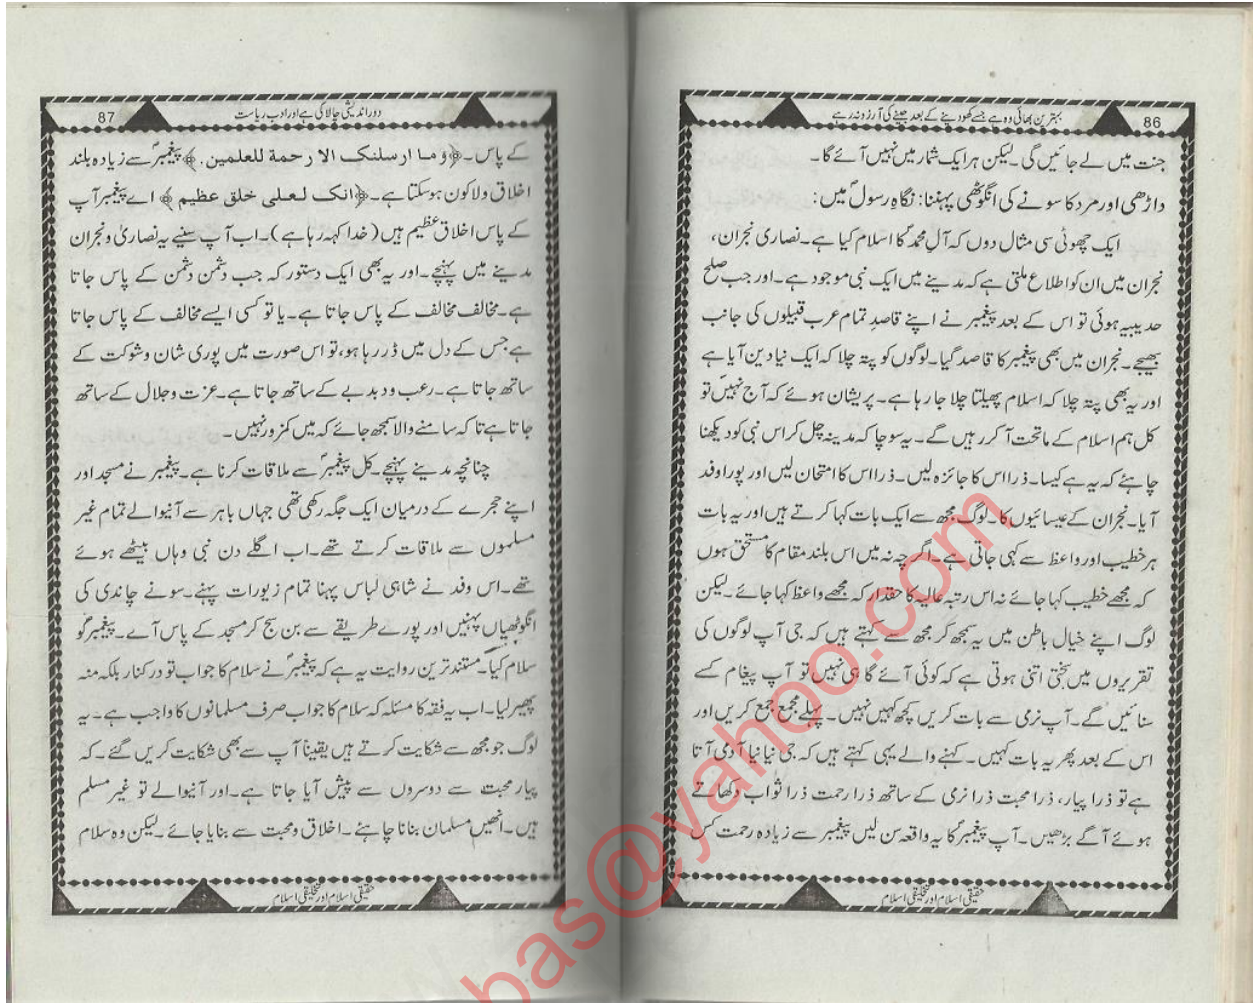 86
بہترین بھائی وہ ہے جسے کھو دینے کے بعد جینے کی آرزو نہ رہے
جنت میں لے جائیں گی۔ لیکن ہر ایک شمار میں نہیں آئے گا۔
داڑھی اور مرد کا سونے کی انگوٹھی پہننا: نگاہِ رسولؐ میں:
ایک چھوٹی سی مثال دوں کہ آلِ محمدؐ کا اسلام کیا ہے۔ نصاریٰ نجران،
نجران میں ان کو اطلاع ملتی ہے کہ مدینے میں ایک نبی موجود ہے۔ اور جب صلح
حدیبیہ ہوئی تو اس کے بعد پیغمبر نے اپنے قاصد تمام عرب قبیلوں کی جانب
بھیجے۔ نجران میں بھی پیغمبر کا قاصد گیا۔ لوگوں کو پتہ چلا کہ ایک نیا دین آیا ہے
اور یہ بھی پتہ چلا کہ اسلام پھیلتا چلا جا رہا ہے۔ پریشان ہوئے کہ آج نہیں تو
کل ہم اسلام کے ماتحت آ کر رہیں گے۔ یہ سوچا کہ مدینہ چل کر اس نبی کو دیکھنا
چاہئے کہ یہ ہے کیسا۔ ذرا اس کا جائزہ لیں۔ ذرا اس کا امتحان لیں اور پورا وفد
آیا۔ نجران کے عیسائیوں کا۔ لوگ مجھ سے ایک بات کہا کرتے ہیں اور یہ بات
ہر خطیب اور واعظ سے کہی جاتی ہے۔ اگر چہ نہ میں اس بلند مقام کا مستحق ہوں
کہ مجھے خطیب کہا جائے نہ اس رتبہ عالیہ کا حقدار کہ مجھے واعظ کہا جائے۔ لیکن
لوگ اپنے خیال باطن میں یہ سمجھ کر مجھ سے کہتے ہیں کہ جی آپ لوگوں کی
تقریروں میں سختی اتنی ہوتی ہے کہ کوئی آئے گا ہی نہیں تو آپ پیغام کسے
سنائیں گے۔ آپ نرمی سے بات کریں کچھ کہیں نہیں۔ پہلے مجمع جمع کریں اور
اس کے بعد پھر یہ بات کہیں۔ کہنے والے یہی کہتے ہیں کہ جی نیا نیا آدمی آتا
ہے تو ذرا پیار، ذرا محبت ذرا نرمی کے ساتھ ذرا رحمت ذرا ثواب دکھاتے
ہوئے آگے بڑھیں۔ آپ پیغمبرؐ کا یہ واقعہ سن لیں پیغمبر سے زیادہ رحمت کس
حقیقی اسلام اور تخلیقی اسلام
87
دور اندیشی چالاکی ہے اور ادب ریاست
کے پاس۔ ﴿وما ارسلنک الا رحمة للعلمین.﴾ پیغمبرؐ سے زیادہ بلند
اخلاق والا کون ہو سکتا ہے۔ ﴿انک لعلی خلق عظیم﴾ اے پیغمبر آپ
کے پاس اخلاق عظیم ہیں (خدا کہہ رہا ہے)۔ اب آپ سنیے یہ نصاریٰ و نجران
مدینے میں پہنچے۔ اور یہ بھی ایک دستور کہ جب دشمن دشمن کے پاس جاتا
ہے۔ مخالف مخالف کے پاس جاتا ہے۔ یا تو کسی ایسے مخالف کے پاس جاتا
ہے جس کے دل میں ڈر رہا ہو، تو اس صورت میں پوری شان و شوکت کے
ساتھ جاتا ہے۔ رعب و دبدبے کے ساتھ جاتا ہے۔ عزت و جلال کے ساتھ
جاتا ہے تا کہ سامنے والا سمجھ جائے کہ میں کمزور نہیں۔
چنانچہ مدینے پہنچے۔ کل پیغمبرؐ سے ملاقات کرنا ہے۔ پیغمبر نے مسجد اور
اپنے حجرے کے درمیان ایک جگہ رکھی تھی جہاں باہر سے آنیوالے تمام غیر
مسلموں سے ملاقات کرتے تھے۔ اب اگلے دن نبی وہاں بیٹھے ہوئے
تھے۔ اس وفد نے شاہی لباس پہنا تمام زیورات پہنے۔ سونے چاندی کی
انگوٹھیاں پہنیں اور پورے طریقے سے بن سج کر مسجد کے پاس آے۔ پیغمبرؐ کو
سلام کیا۔ مستند ترین روایت یہ ہے کہ پیغمبرؐ نے سلام کا جواب تو درکنار بلکہ منہ
پھیر لیا۔ اب یہ فقہ کا مسئلہ کہ سلام کا جواب صرف مسلمانوں کا واجب ہے۔ یہ
لوگ جو مجھ سے شکایت کرتے ہیں یقیناً آپ سے بھی شکایت کریں گئے۔ کہ
پیار محبت سے دوسروں سے پیش آیا جاتا ہے۔ اور آنیوالے تو غیر مسلم
ہیں۔ انھیں مسلمان بنانا چاہئے۔ اخلاق و محبت سے بنایا جائے۔ لیکن وہ سلام
حقیقی اسلام اور تخلیقی اسلام
bas@yahoo.com